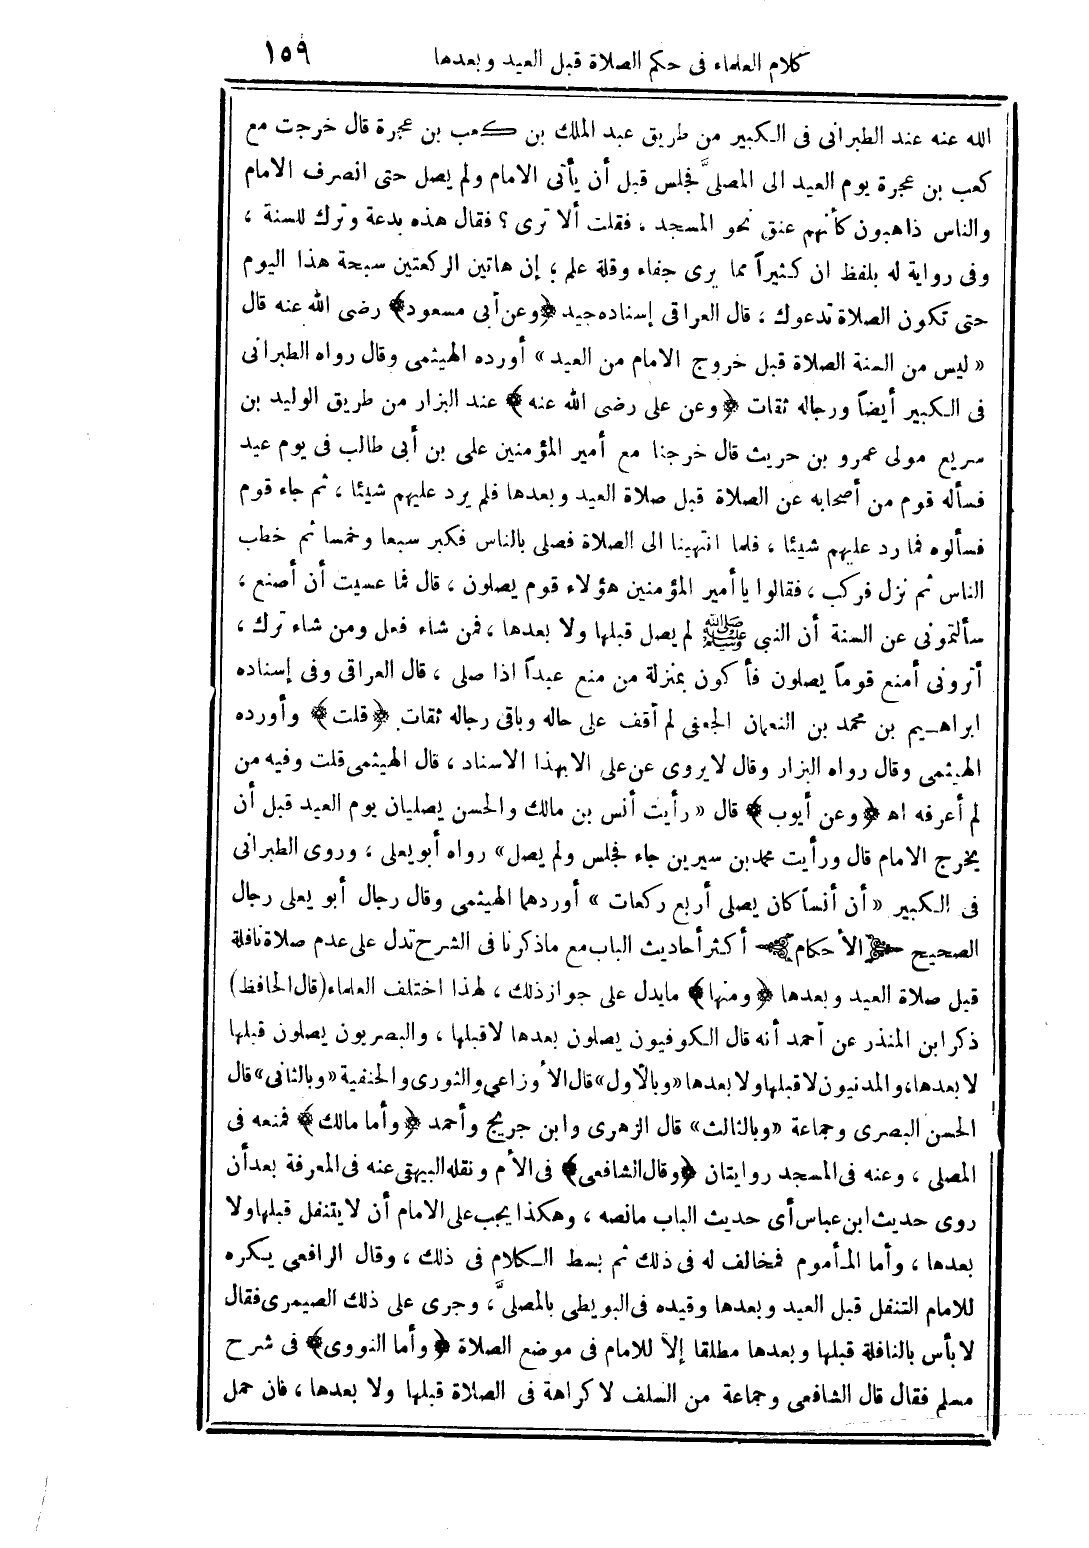 كلام العلماء فى حكم الصلاة قبل العيد وبعدها ١٥٩
الله عنه عند الطبرانى فى الكبير من طريق عبد الملك بن كعب بن عجرة قال خرجت مع
كعب بن عجرة يوم العيد الى المصلىَّ فجلس قبل أن يأتى الامام ولم يصل حتى انصرف الامام
والناس ذاهبون كأنهم عنق نحو المسجد ، فقلت ألا ترى ؟ فقال هذه بدعة وترك للسنة ،
وفى رواية له بلفظ ان كثيراً مما يرى جفاء وقلة علم ؛ إن هاتين الركعتين سبحة هذا اليوم
حتى تكون الصلاة تدعوك ، قال العراقى إسناده جيد ﴿وعن أبى مسعود﴾ رضى الله عنه قال
« ليس من السنة الصلاة قبل خروج الامام من العيد » أورده الهيثمى وقال رواه الطبرانى
فى الكبير أيضاً ورجاله ثقات ﴿ وعن على رضى الله عنه ﴾ عند البزار من طريق الوليد بن
سريع مولى عمرو بن حريث قال خرجنا مع أمير المؤمنين على بن أبى طالب فى يوم عيد
فسأله قوم من أصحابه عن الصلاة قبل صلاة العيد وبعدها فلم يرد عليهم شيئا ، ثم جاء قوم
فسألوه فما رد عليهم شيئا ، فلما انتهينا الى الصلاة فصلى بالناس فكبر سبعا وخمسا ثم خطب
الناس ثم نزل فركب ، فقالوا يا أمير المؤمنين هؤلاء قوم يصلون ، قال فما عسيت أن أصنع ،
سألتمونى عن السنة أن النبى ﷺ لم يصل قبلها ولا بعدها ، فمن شاء فعل ومن شاء ترك ،
أترونى أمنع قوماً يصلون فأكون بمنزلة من منع عبداً اذا صلى ، قال العراقى وفى إسناده
ابراهيم بن محمد بن النعمان الجعفى لم أقف على حاله وباقى رجاله ثقات ﴿ قلت ﴾ وأورده
الهيثمى وقال رواه البزار وقال لا يروى عن على الا بهذا الاسناد ، قال الهيثمى قلت وفيه من
لم أعرفه اه ﴿ وعن أيوب ﴾ قال « رأيت أنس بن مالك والحسن يصليان يوم العيد قبل أن
يخرج الامام قال ورأيت محمد بن سيرين جاء فجلس ولم يصل » رواه أبو يعلى ، وروى الطبرانى
فى الكبير « أن أنساً كان يصلى أربع ركعات » أوردهما الهيثمى وقال رجال أبو يعلى رجال
الصحيح ﴿ الأحكام ﴾ أكثر أحاديث الباب مع ما ذكرنا فى الشرح تدل على عدم صلاة نافلة
قبل صلاة العيد وبعدها ﴿ ومنها ﴾ ما يدل على جواز ذلك ، لهذا اختلف العلماء (قال الحافظ)
ذكر ابن المنذر عن أحمد أنه قال الكوفيون يصلون بعدها لا قبلها ، والبصريون يصلون قبلها
لا بعدها، والمدنيون لا قبلها ولا بعدها «وبالأول» قال الأوزاعى والثورى والحنفية «وبالثانى» قال
الحسن البصرى وجماعة «وبالثالث» قال الزهرى وابن جريج وأحمد ﴿ وأما مالك ﴾ فمنعه فى
المصلى ، وعنه فى المسجد روايتان ﴿وقال الشافعى﴾ فى الأم ونقله البيهقى عنه فى المعرفة بعد أن
روى حديث ابن عباس أى حديث الباب مانصه ، وهكذا يجب على الامام أن لا يتنفل قبلها ولا
بعدها ، وأما المأموم فمخالف له فى ذلك ثم بسط الكلام فى ذلك ، وقال الرافعى يكره
للامام التنفل قبل العيد وبعدها وقيده فى البويطى بالمصلىَّ ، وجرى على ذلك الصيمرى فقال
لا بأس بالنافلة قبلها وبعدها مطلقا إلا للامام فى موضع الصلاة ﴿ وأما النووى ﴾ فى شرح
مسلم فقال قال الشافعى وجماعة من السلف لا كراهة فى الصلاة قبلها ولا بعدها ، فان حمل